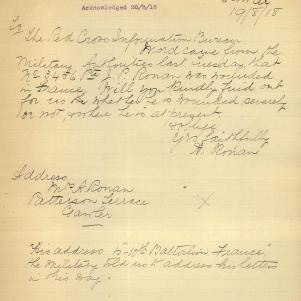 Gawler
19/8/18
Acknowledged 20/8/18
To
The Red Cross Information Bureau
Word came from the
Military Authorities last Tuesday that
No 3456 Pte J. P. Ronan was wounded
in France. Will you kindly find out
for us whether he is wounded severely
or not, & where he is at present
& oblige
Yrs faithfully
A. Ronan
Address
Mrs A. Ronan
Patterson Terrace
Gawler
"His address is - 10th Battalion France"
the Military told us to address his letters
in this way.